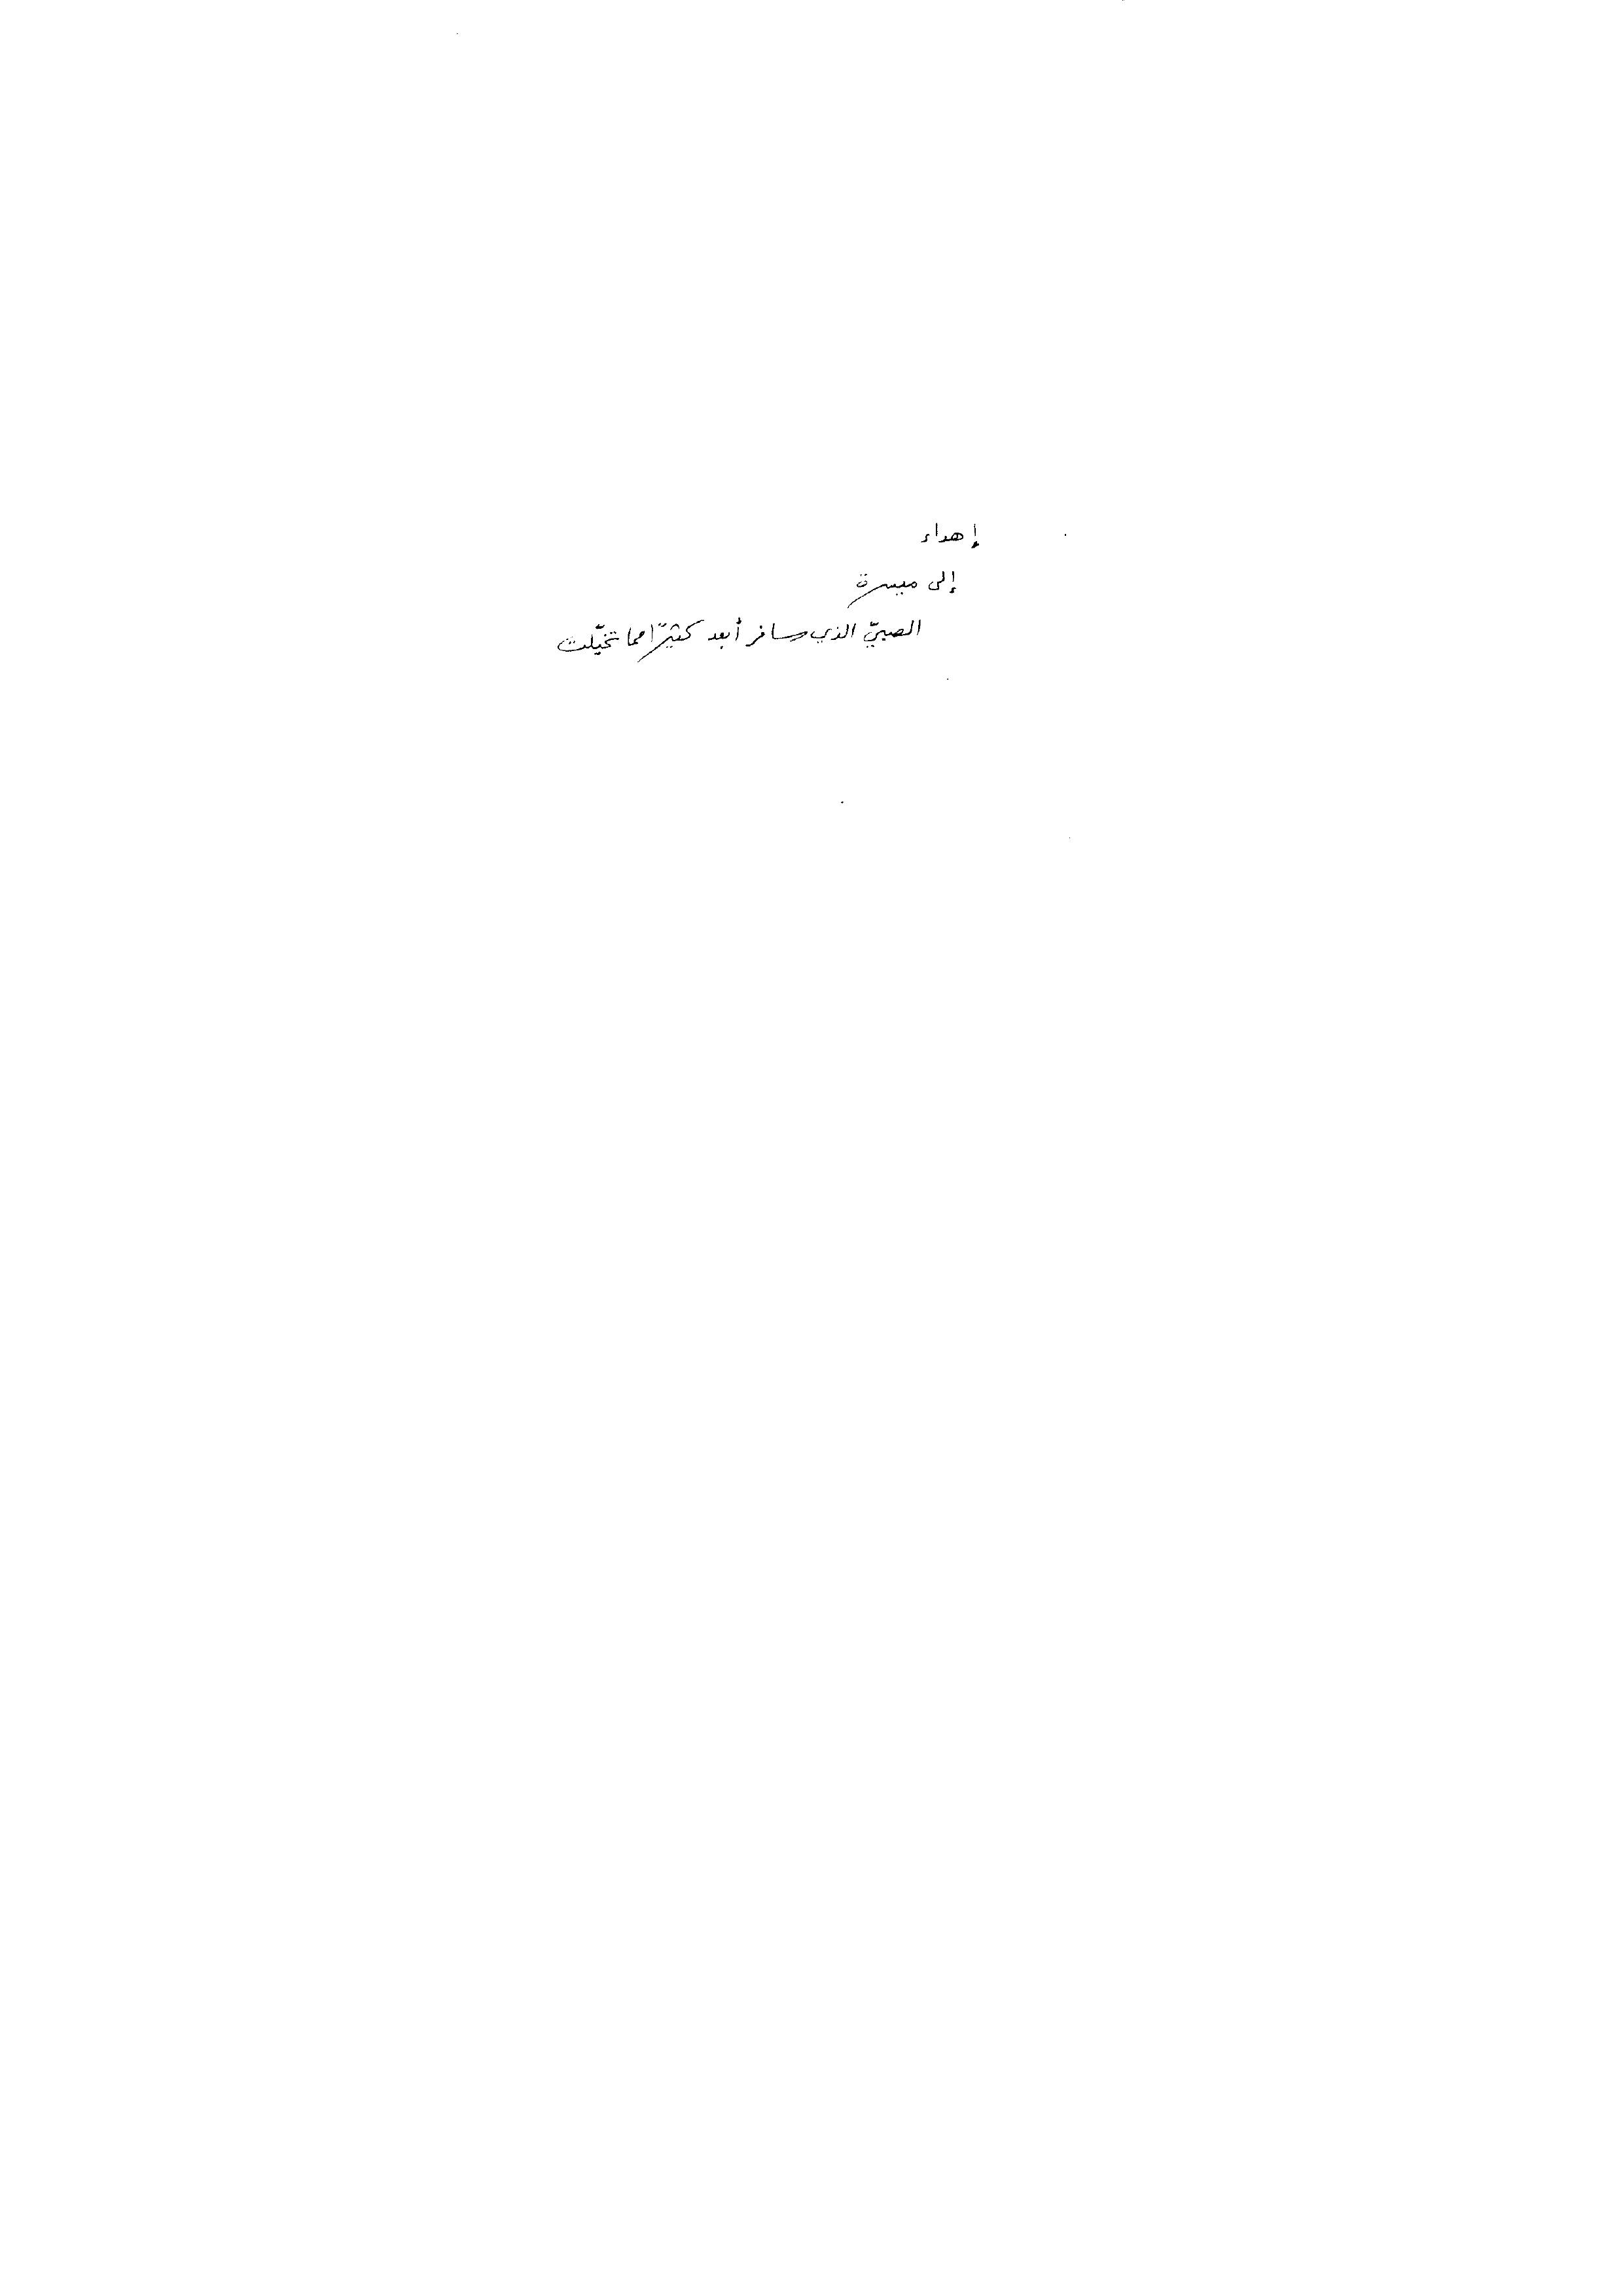 إهداء
إلى ميسرة
الصبيّ الذي سافر أبعد كثيرًا مما تخيّلت